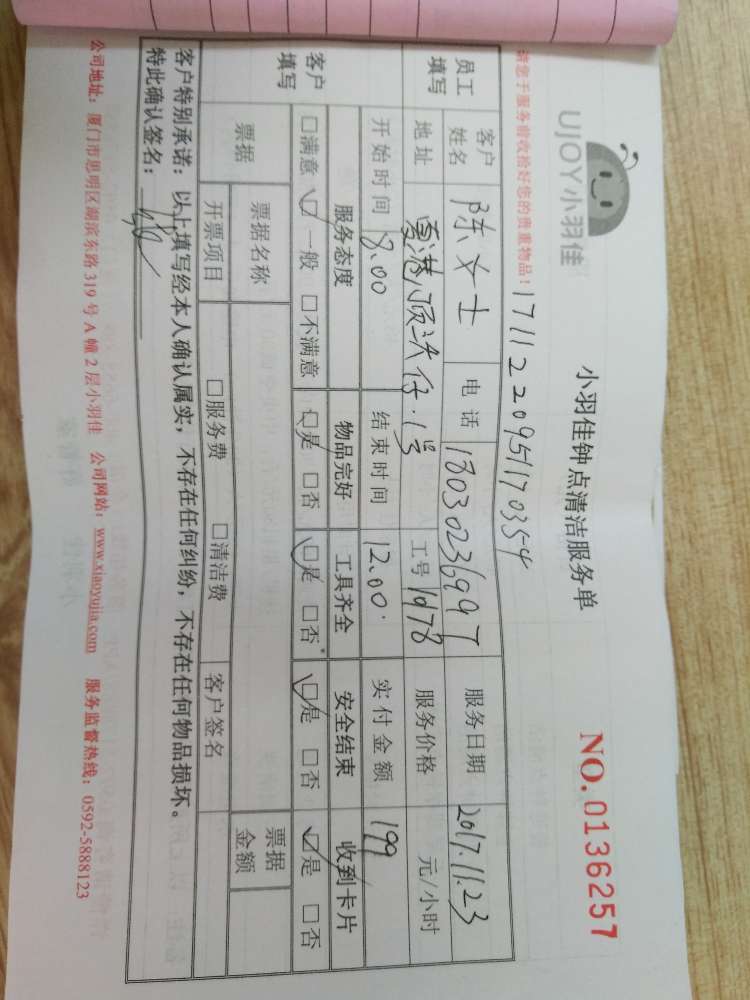 UJOY小羽佳
小羽佳钟点清洁服务单
NO.0136257
请您于服务前收拾好您的贵重物品！
1711220951170354
员工填写
客户姓名 陈女士 电话 18030236997 服务日期 2017.11.23
地址 工号 1978 服务价格 元/小时
开始时间 8.00 结束时间 12.00. 实付金额 199
客户填写
服务态度 物品完好 工具齐全 安全结束 收到卡片
□满意 ☑一般 □不满意 ☑是 □否 ☑是 □否 ☑是 □否 ☑是 □否
票据 票据名称 票据金额
开票项目 □服务费 □清洁费 客户签名
客户特别承诺：以上填写经本人确认属实，不存在任何纠纷，不存在任何物品损坏。
特此确认签名：
公司地址：厦门市思明区湖滨东路319号A幢2层小羽佳 公司网站：www.xiaoyujia.com 服务监督热线：0592-5888123